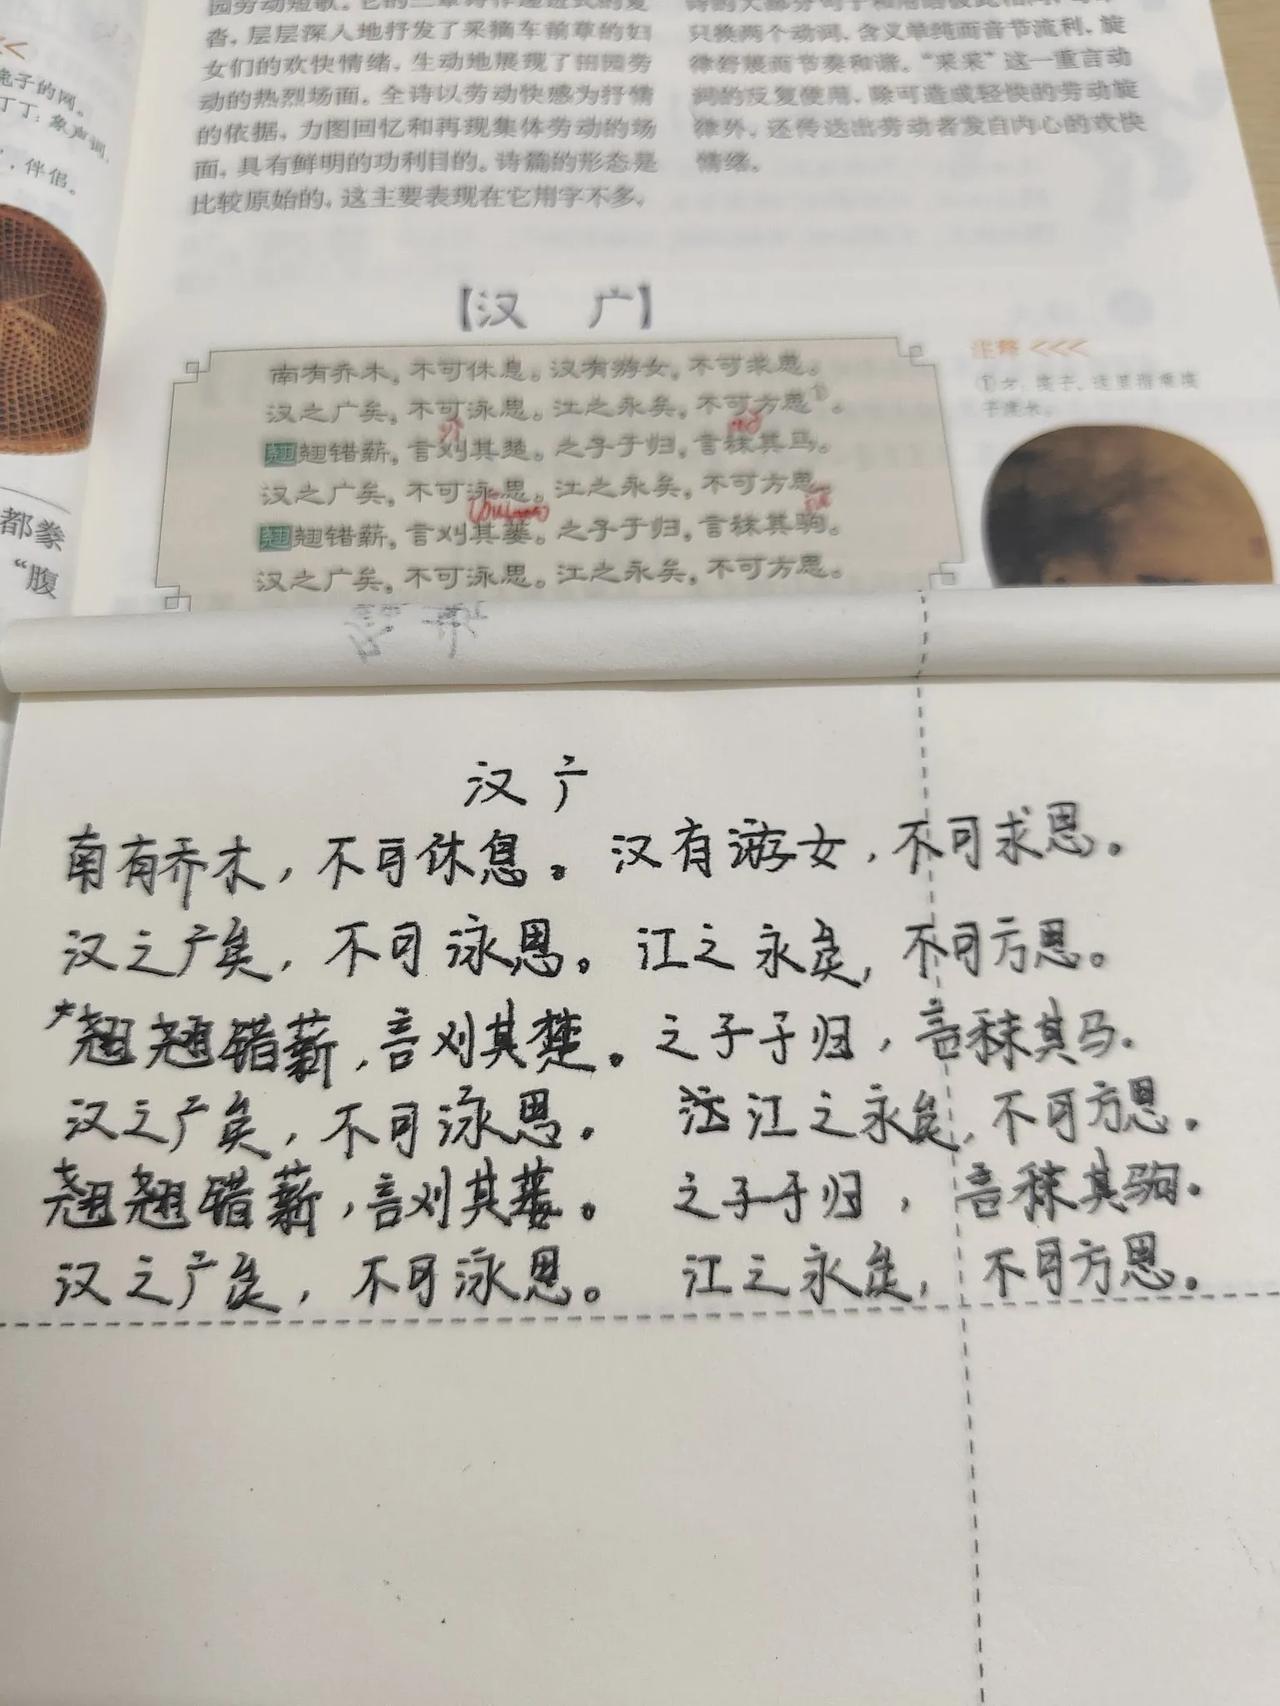 园劳动短歌。它的三章诗作递进式的复
沓，层层深入地抒发了采摘车前草的妇
女们的欢快情绪，生动地展现了田园劳
动的热烈场面。全诗以劳动快感为抒情
的依据，力图回忆和再现集体劳动的场
面，具有鲜明的功利目的。诗篇的形态是
比较原始的，这主要表现在它用字不多，
诗的大部分句子和用语彼此相同，
只换两个动词，含义单纯而音节流利，旋
律舒展而节奏和谐。“采采”这一重言动
词的反复使用，除可造成轻快的劳动旋
律外，还传达出劳动者发自内心的欢快
情绪。
兔子的网。
丁丁：象声词，
，伴侣。
都豢
“腹
【汉 广】
南有乔木，不可休息。汉有游女，不可求思。
汉之广矣，不可泳思。江之永矣，不可方思①。
翘翘错薪，言刈其楚。之子于归，言秣其马。
汉之广矣，不可泳思。江之永矣，不可方思。
翘翘错薪，言刈其蒌。之子于归，言秣其驹。
汉之广矣，不可泳思。江之永矣，不可方思。
注释 <<<
①方，筏子，这里指乘筏
子渡水。
汉广
南有乔木，不可休息。汉有游女，不可求思。
汉之广矣，不可泳思。江之永矣，不可方思。
翘翘错薪，言刈其楚。之子于归，言秣其马.
汉之广矣，不可泳思. 江之永矣，不可方思.
翘翘错薪，言刈其蒌. 之子于归，言秣其驹.
汉之广矣，不可泳思。 江之永矣，不可方思。